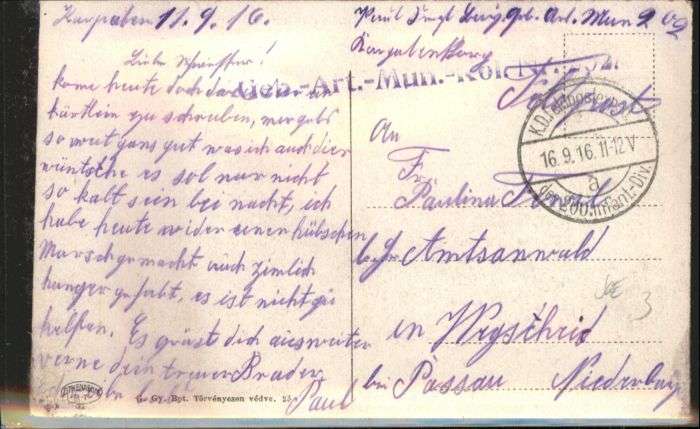 Karpaten 11.9.16.
Liebe Schwester!
kome heute doch dazu ein
kärtlein zu schreiben, mir gets
so weit ganz gut was ich auch dir
wüntsche es sol nur nicht
so kalt sein bei nacht, ich
habe heute wider einen hübschen
Marsch gemacht auch zimlich
hunger gehabt, es ist nicht zu
helfen. Es grüst dich aus weiter
verne dein treuer Bruder
Paul
G. Gy. Rpt. Törvényesen védve.
Paul Geb. Art. Mun.
Geb.-Art.-Mun.-Kol.
Feldpost
K.D. Feldpostexp.
16.9.16. 11-12 V
a
der 200. Infant.-Div.
An
Fr.
Paulina
bei Amtsanwald
in Wegscheid
bei Passau Niederbay
3